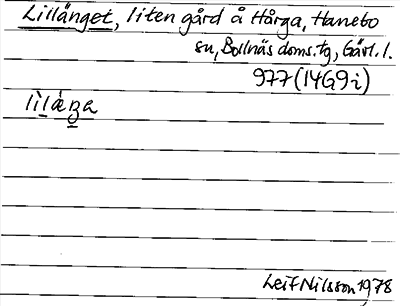 Lillänget, liten gård å Hårga, Hanebo
sn, Bollnäs doms. tg, Gävl. l.
977 (14G9i)
lìlǽŋa
Leif Nilsson 1978